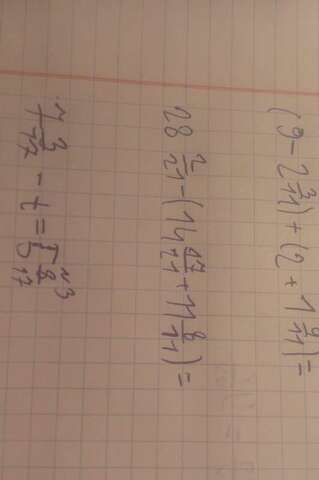 (9 - 2 3/11) + (2 + 1 9/11) =
28 2/21 - (14 17/21 + 11 8/11) =
N3
7 3/17 - t = 5 8/17